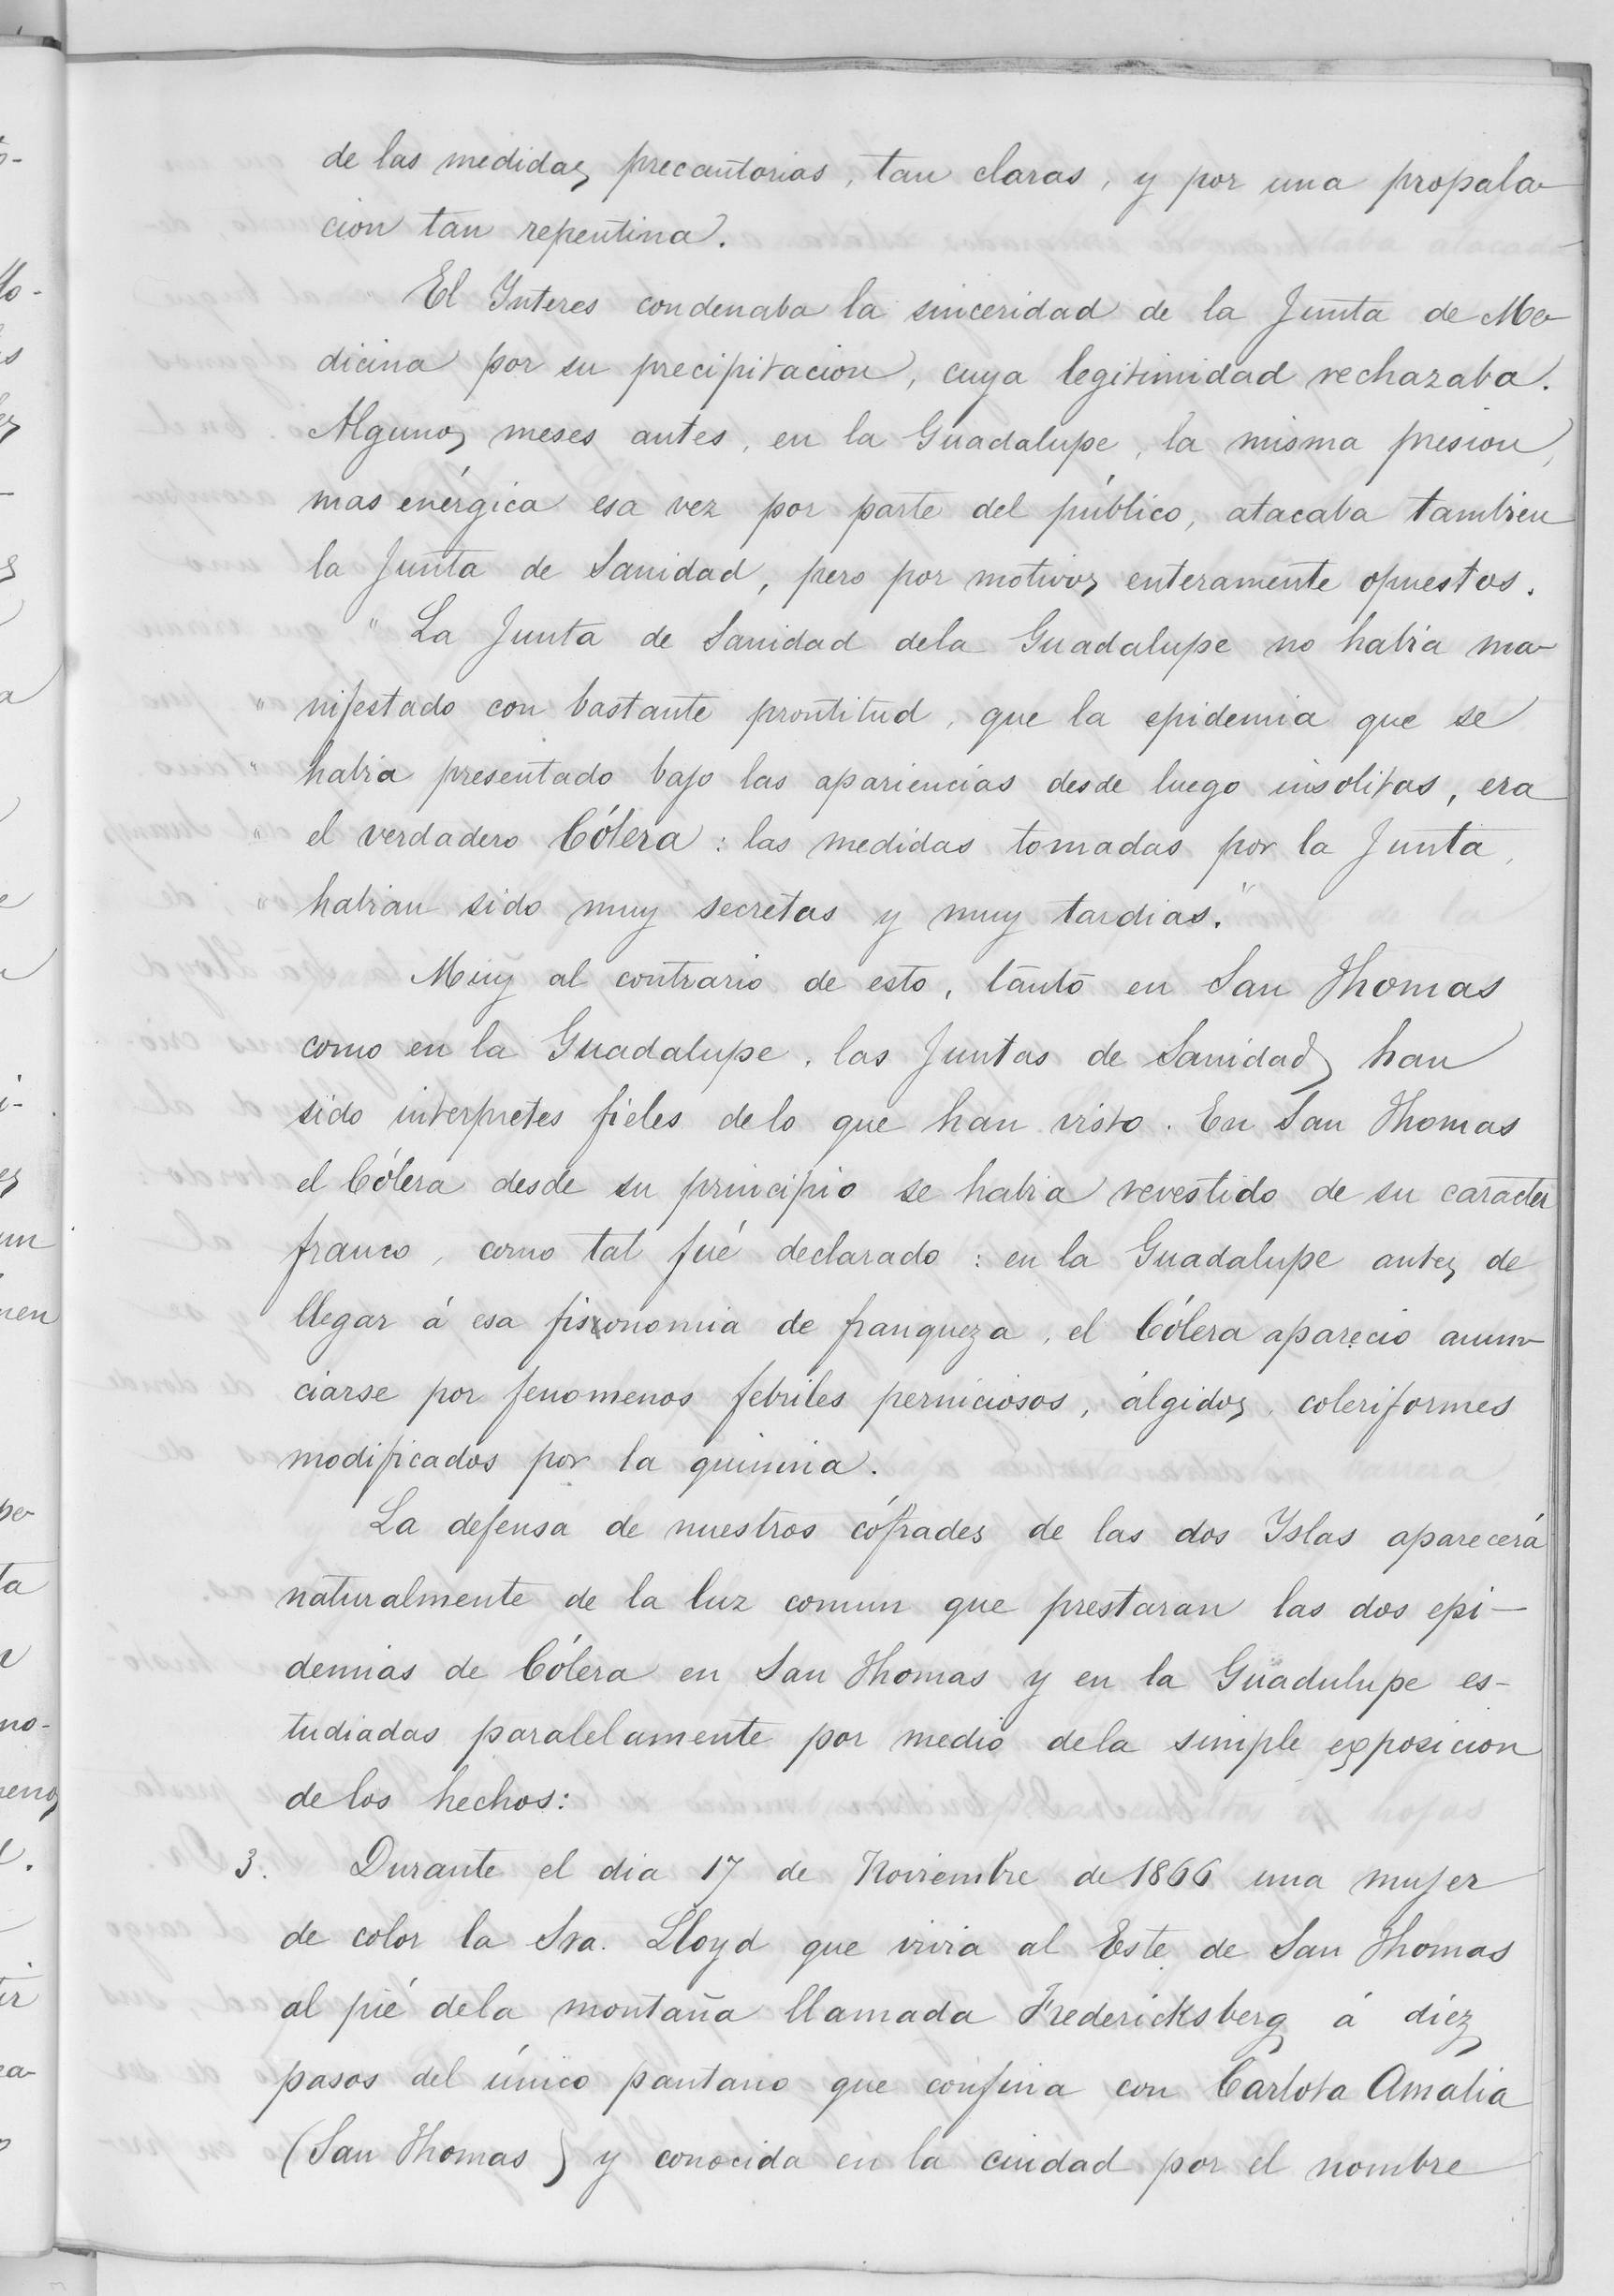 de las medidas precautorias, tan claras, y por una propala-
cion tan repentina.
El Interes condenaba la sinceridad de la Junta de Me-
dicina por su precipitacion, cuya legitimidad rechazaba.
Algunos meses antes, en la Guadalupe, la misma presion,
mas enérgica esa vez por parte del público, atacaba tambien
la Junta de Sanidad, pero por motivos enteramente opuestos.
" La Junta de Sanidad dela Guadalupe no habia ma-
" nifestado con bastante prontitud, que la epidemia que se
" habia presentado bajo las apariencias desde luego insolitas, era
" el verdadero Cólera: las medidas tomadas por la Junta,
" habian sido muy secretas y muy tardias."
Muy al contrario de esto, tanto en San Thomas
como en la Guadalupe, las Juntas de Sanidad, han
sido interpretes fieles delo que han visto. En San Thomas
el Cólera desde su principio se habia revestido de su caracter
franco, como tal fué declarado: en la Guadalupe antes de
llegar á esa fisonomia de franqueza, el Cólera aparecio anun-
ciarse por fenomenos febriles perniciosos, álgidos, coleriformes
modificados por la quinina.
La defensa de nuestros cófrades de las dos Yslas aparecerá
naturalmente de la luz comun que prestaran las dos epi-
demias de Cólera en San Thomas y en la Guadulupe es-
tudiadas paralelamente por medio dela simple exposicion
delos hechos:
3. Durante el dia 17 de Noviembre de 1866 una mujer
de color la Sra. Lloyd que vivia al Este de San Thomas
al pié dela montaña llamada Fredericksberg á diez
pasos del único pantano que confina con Carlota Amalia
(San Thomas) y conocida en la ciudad por el nombre